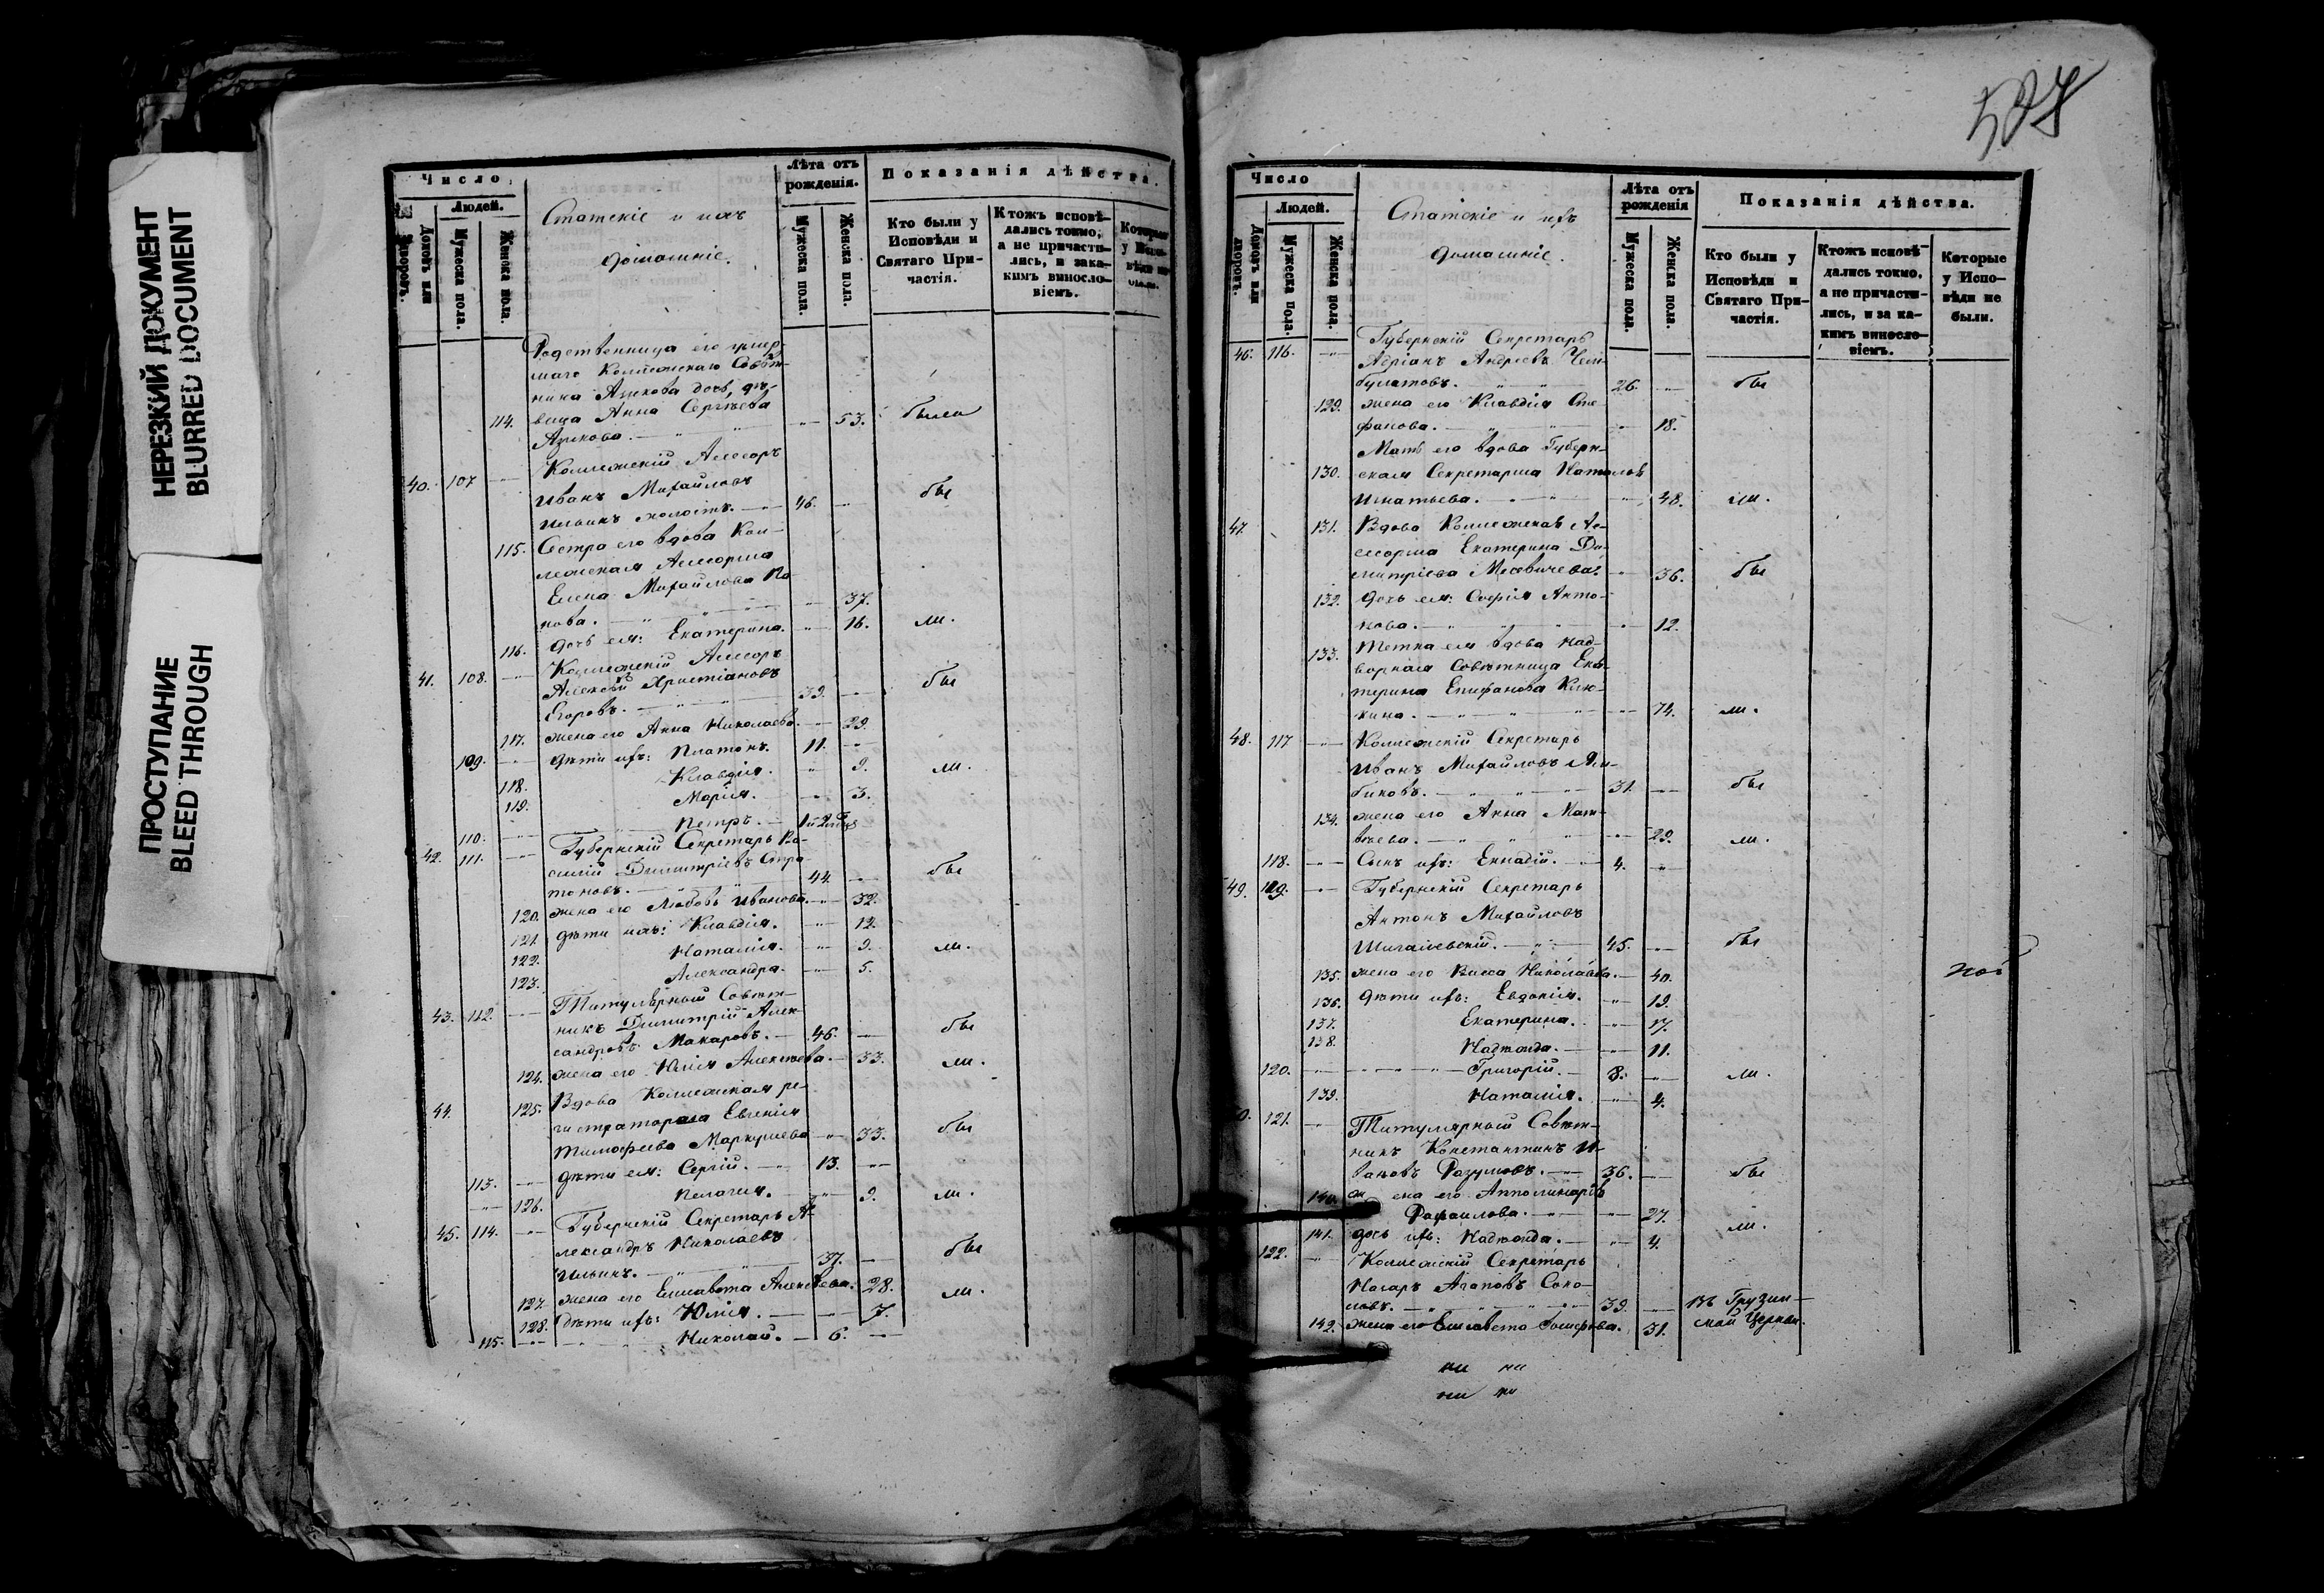 НЕРЕЗКИЙ ДОКУМЕНТ
BLURRED DOCUMENT
ПРОСТУПАНИЕ
BLEED THROUGH
Число
Людей.
Домовъ или дворовъ.
Мужеска пола.
Женска пола.
Статскіе и ихъ
домашніе.
Лѣта отъ
рожденія.
Мужеска пола.
Женска пола.
Показанія дѣйства.
Кто были у
Исповѣди и
Святаго При-
частія.
Ктожъ исповѣ-
дались токмо,
а не причасти-
лись, и зака-
кимъ виносло-
віемъ.
Которые
у Испо-
вѣди не
были.
Родственница его умер-
шаго Коллежскаго Совѣт-
ника Азикова дочь, дѣ-
114. вица Анна Сергѣева
Азикова. 53. была
40. 107 Коллежскій Ассесоръ
Иванъ Михайловъ
Ильинъ холостъ. 46. бы
115. Сестра его вдова Кол-
лежская Ассесорша
Елена Михайлова По
нова. 37.
116. дочь ея: Екатерина. 16. ли.
41. 108. Коллежскій Ассесоръ
Алексѣй Христіановъ
Егоровъ. 39. бы
117. жена его Анна Николаева. 29.
109. дѣти ихъ: Платонъ. 11.
118. Клавдія. 9. ли.
119. Марія. 3.
110. Петръ.
42. 111. Губернскій Секретарь Ва-
силій Димитріевъ Стра
тоновъ. 44. бы
120. жена его Любовь Иванова. 32.
121. дѣти ихъ: Клавдія. 12.
122. Наталія. 9. ли.
123. Александра. 5.
43. 112. Титулярный Совѣт-
никъ Димитрій Алек-
сандровъ Макаровъ. 46. бы
124. жена его Юлія Алексѣева. 33. ли.
44. 125. Вдова Коллежская ре-
гистраторша Евгенія
Тимофеева Маркушева 33. бы
113. дѣти ея: Сергій. 13.
126. Пелагея. 9. ли.
45. 114. Губернскій Секретарь А-
лександръ Николаевъ
Ильинъ. 37. бы
127. жена его Елисавета Алексѣева. 28. ли.
128. дѣти ихъ: Юлія. 7.
115. Николай. 6.
Число
Людей.
Домовъ или дворовъ.
Мужеска пола.
Женска пола.
Статскіе и ихъ
домашніе.
Лѣта отъ
рожденія
Мужеска пола.
Женска пола.
Показанія дѣйства.
Кто были у
Исповѣди и
Святаго При-
частія.
Ктожъ исповѣ-
дались токмо,
а не причасти-
лись, и за ка-
кимъ виносло-
віемъ.
Которые
у Испо-
вѣди не
были.
46. 116. Губернскій Секретарь
Адріанъ Андреевъ Чел-
булатовъ. 26. бы
129. жена его Клавдія Сте
фанова. 18.
Мать его вдова Губерн-
130. ская Секретарша Наталья
Игнатьева. 48. ли.
47. 131. Вдова Коллежская Ас-
сесорша Екатерина Ди-
митріева 36. бы
132. дочь ея: Софія Анто-
нова. 12.
133. Тетка ея вдова Над-
ворная Совѣтница Ека-
терина Епифанова Клю-
кина. 74. ли.
48. 117 Коллежскій Секретарь
Иванъ Михайловъ Ал-
биковъ. 31. бы
134. жена его Анна Мат-
вѣева. 29. ли.
118. Сынъ ихъ: Еннадій. 4.
49. 119. Губернскій Секретарь
Антонъ Михайловъ
Шигалевскій. 45. бы
135. жена его Васса Николаева. 40.
136. дѣти ихъ: Евдокія. 19.
137. Екатерина. 17.
138. Надежда. 11.
120. Григорій. 8. ли.
139. Наталія. 4.
0. 121. Титулярный Совѣт-
никъ Константинъ И-
вановъ Разумовъ. 36. бы
140. жена его Апполинарія
Рафаилова. 27.
141. дочь ихъ: Надежда. 4. ли.
122. Коллежскій Секретарь
Назаръ Агаповъ Соко-
ловъ. 39. въ Грузин-
142. жена его Елисавета 31. ской Церкви.